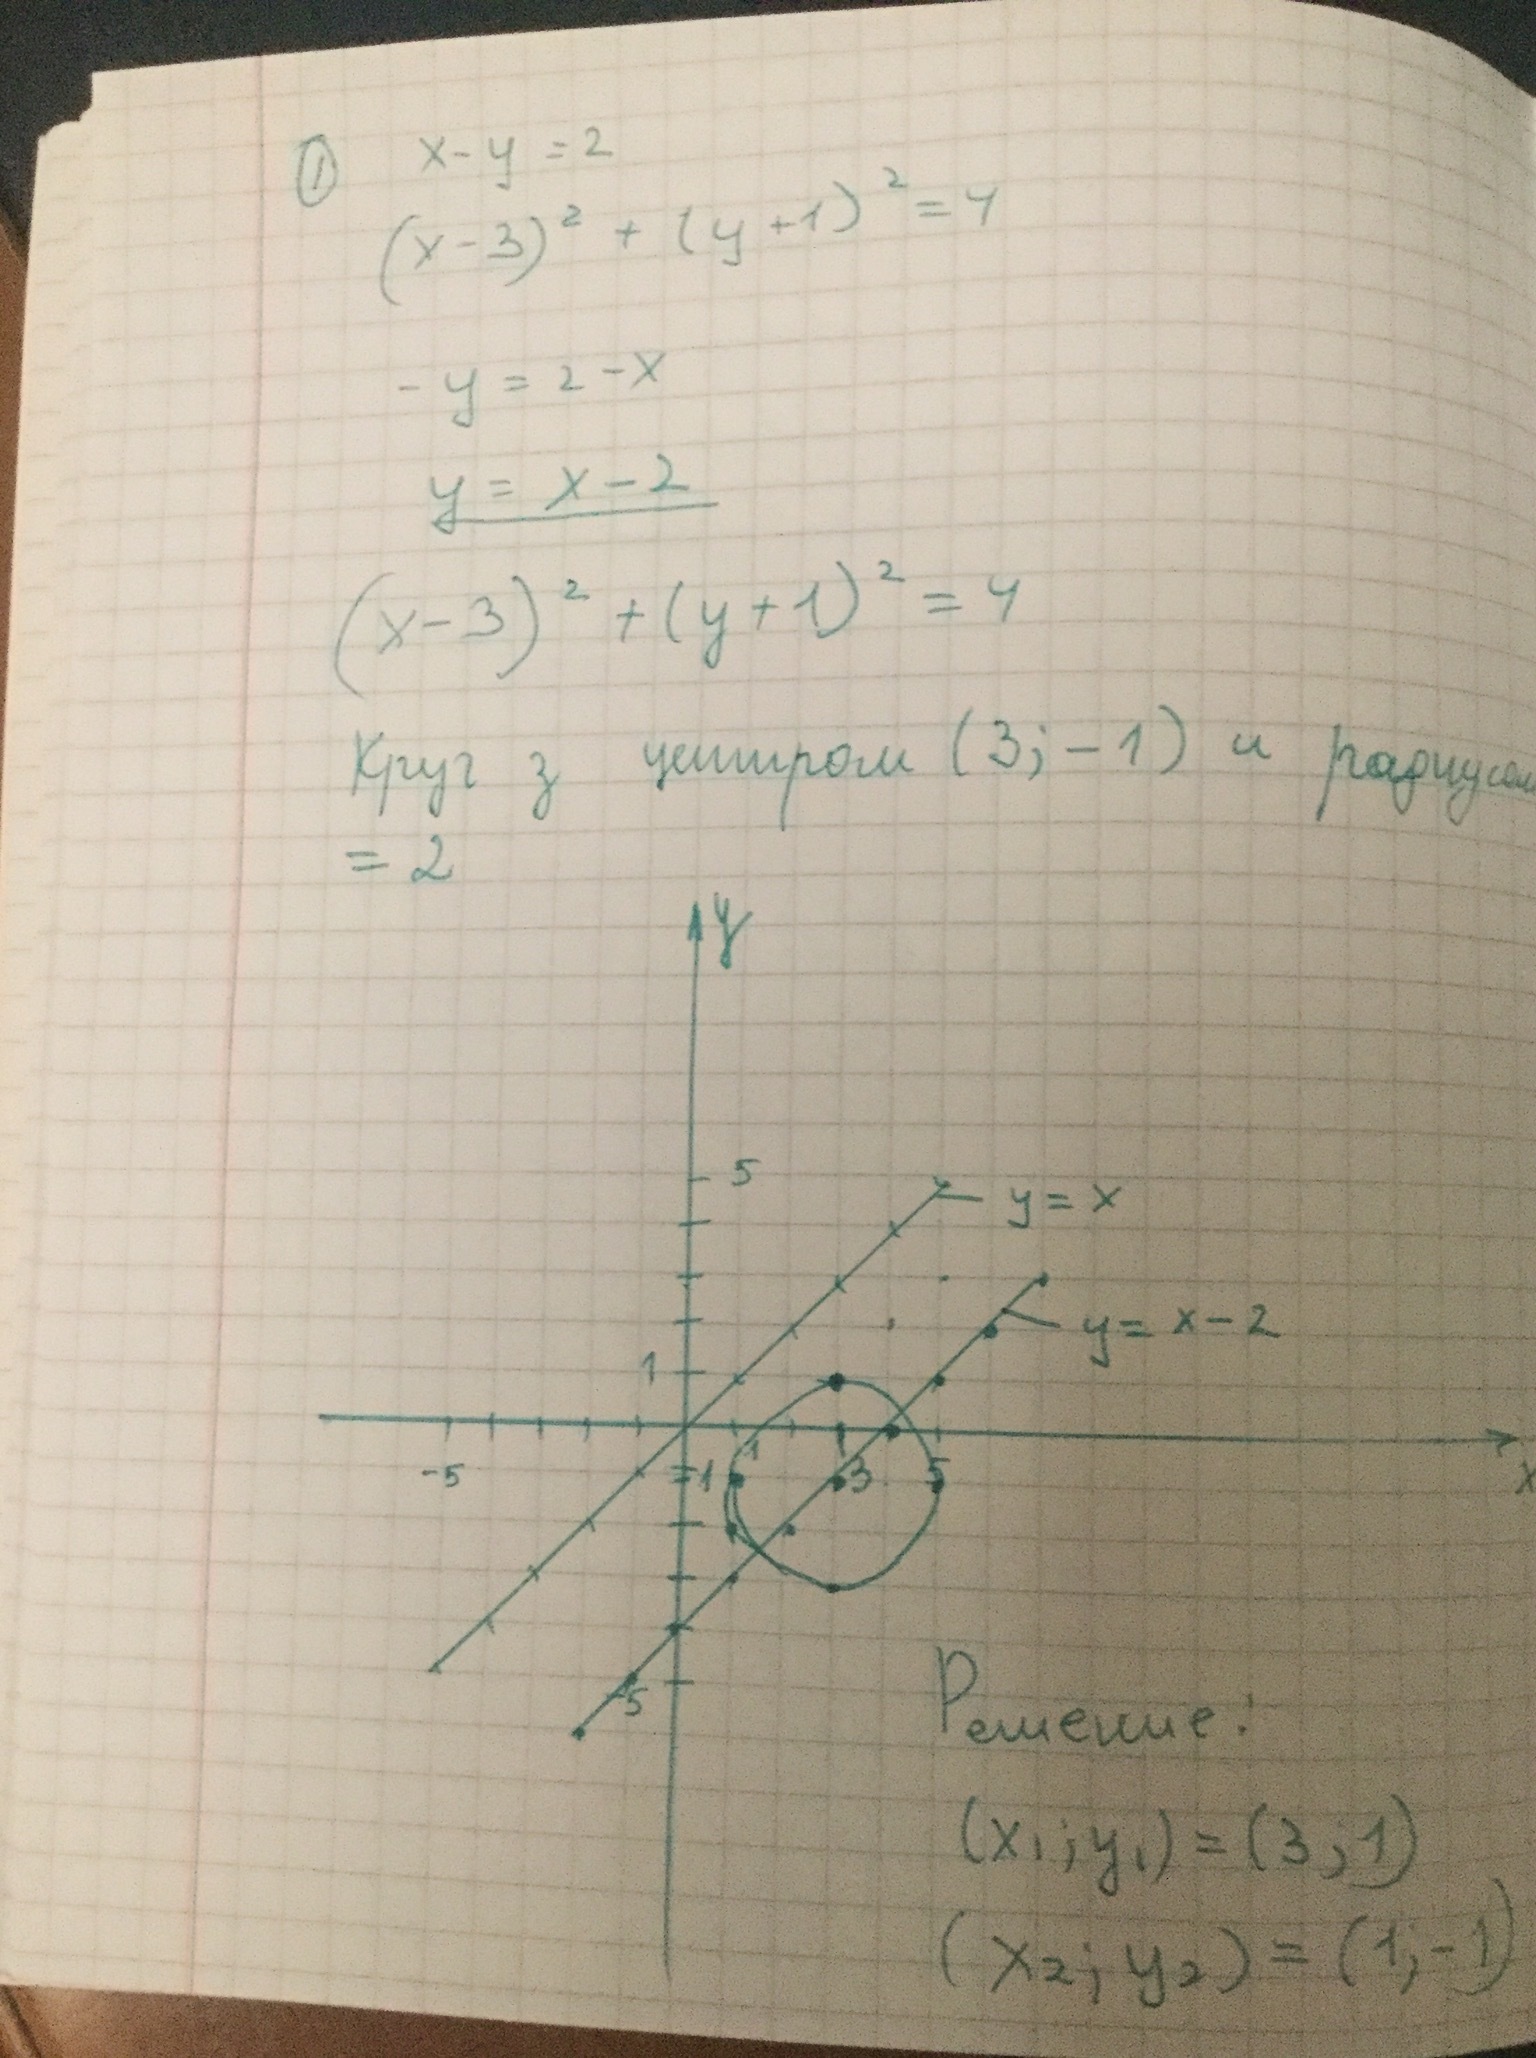 ① x-y=2
(x-3)² + (y+1)²=4
-y=2-x
y=x-2
(x-3)² +(y+1)²=4
Круг з центром (3;-1) и радиусом
=2
y
5
y=x
1
y=x-2
-5
-1
1
3
5
x
-5
Решение:
(x₁;y₁)=(3;1)
(x₂;y₂)=(1;-1)